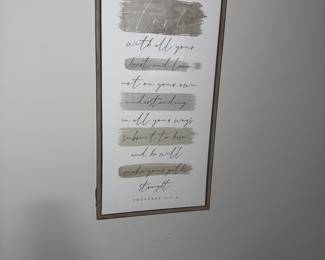 with all your
heart and lean
not on your own
understanding
in all your ways
submit to him
and he will
make your paths
straight
PROVERBS 3:5-6